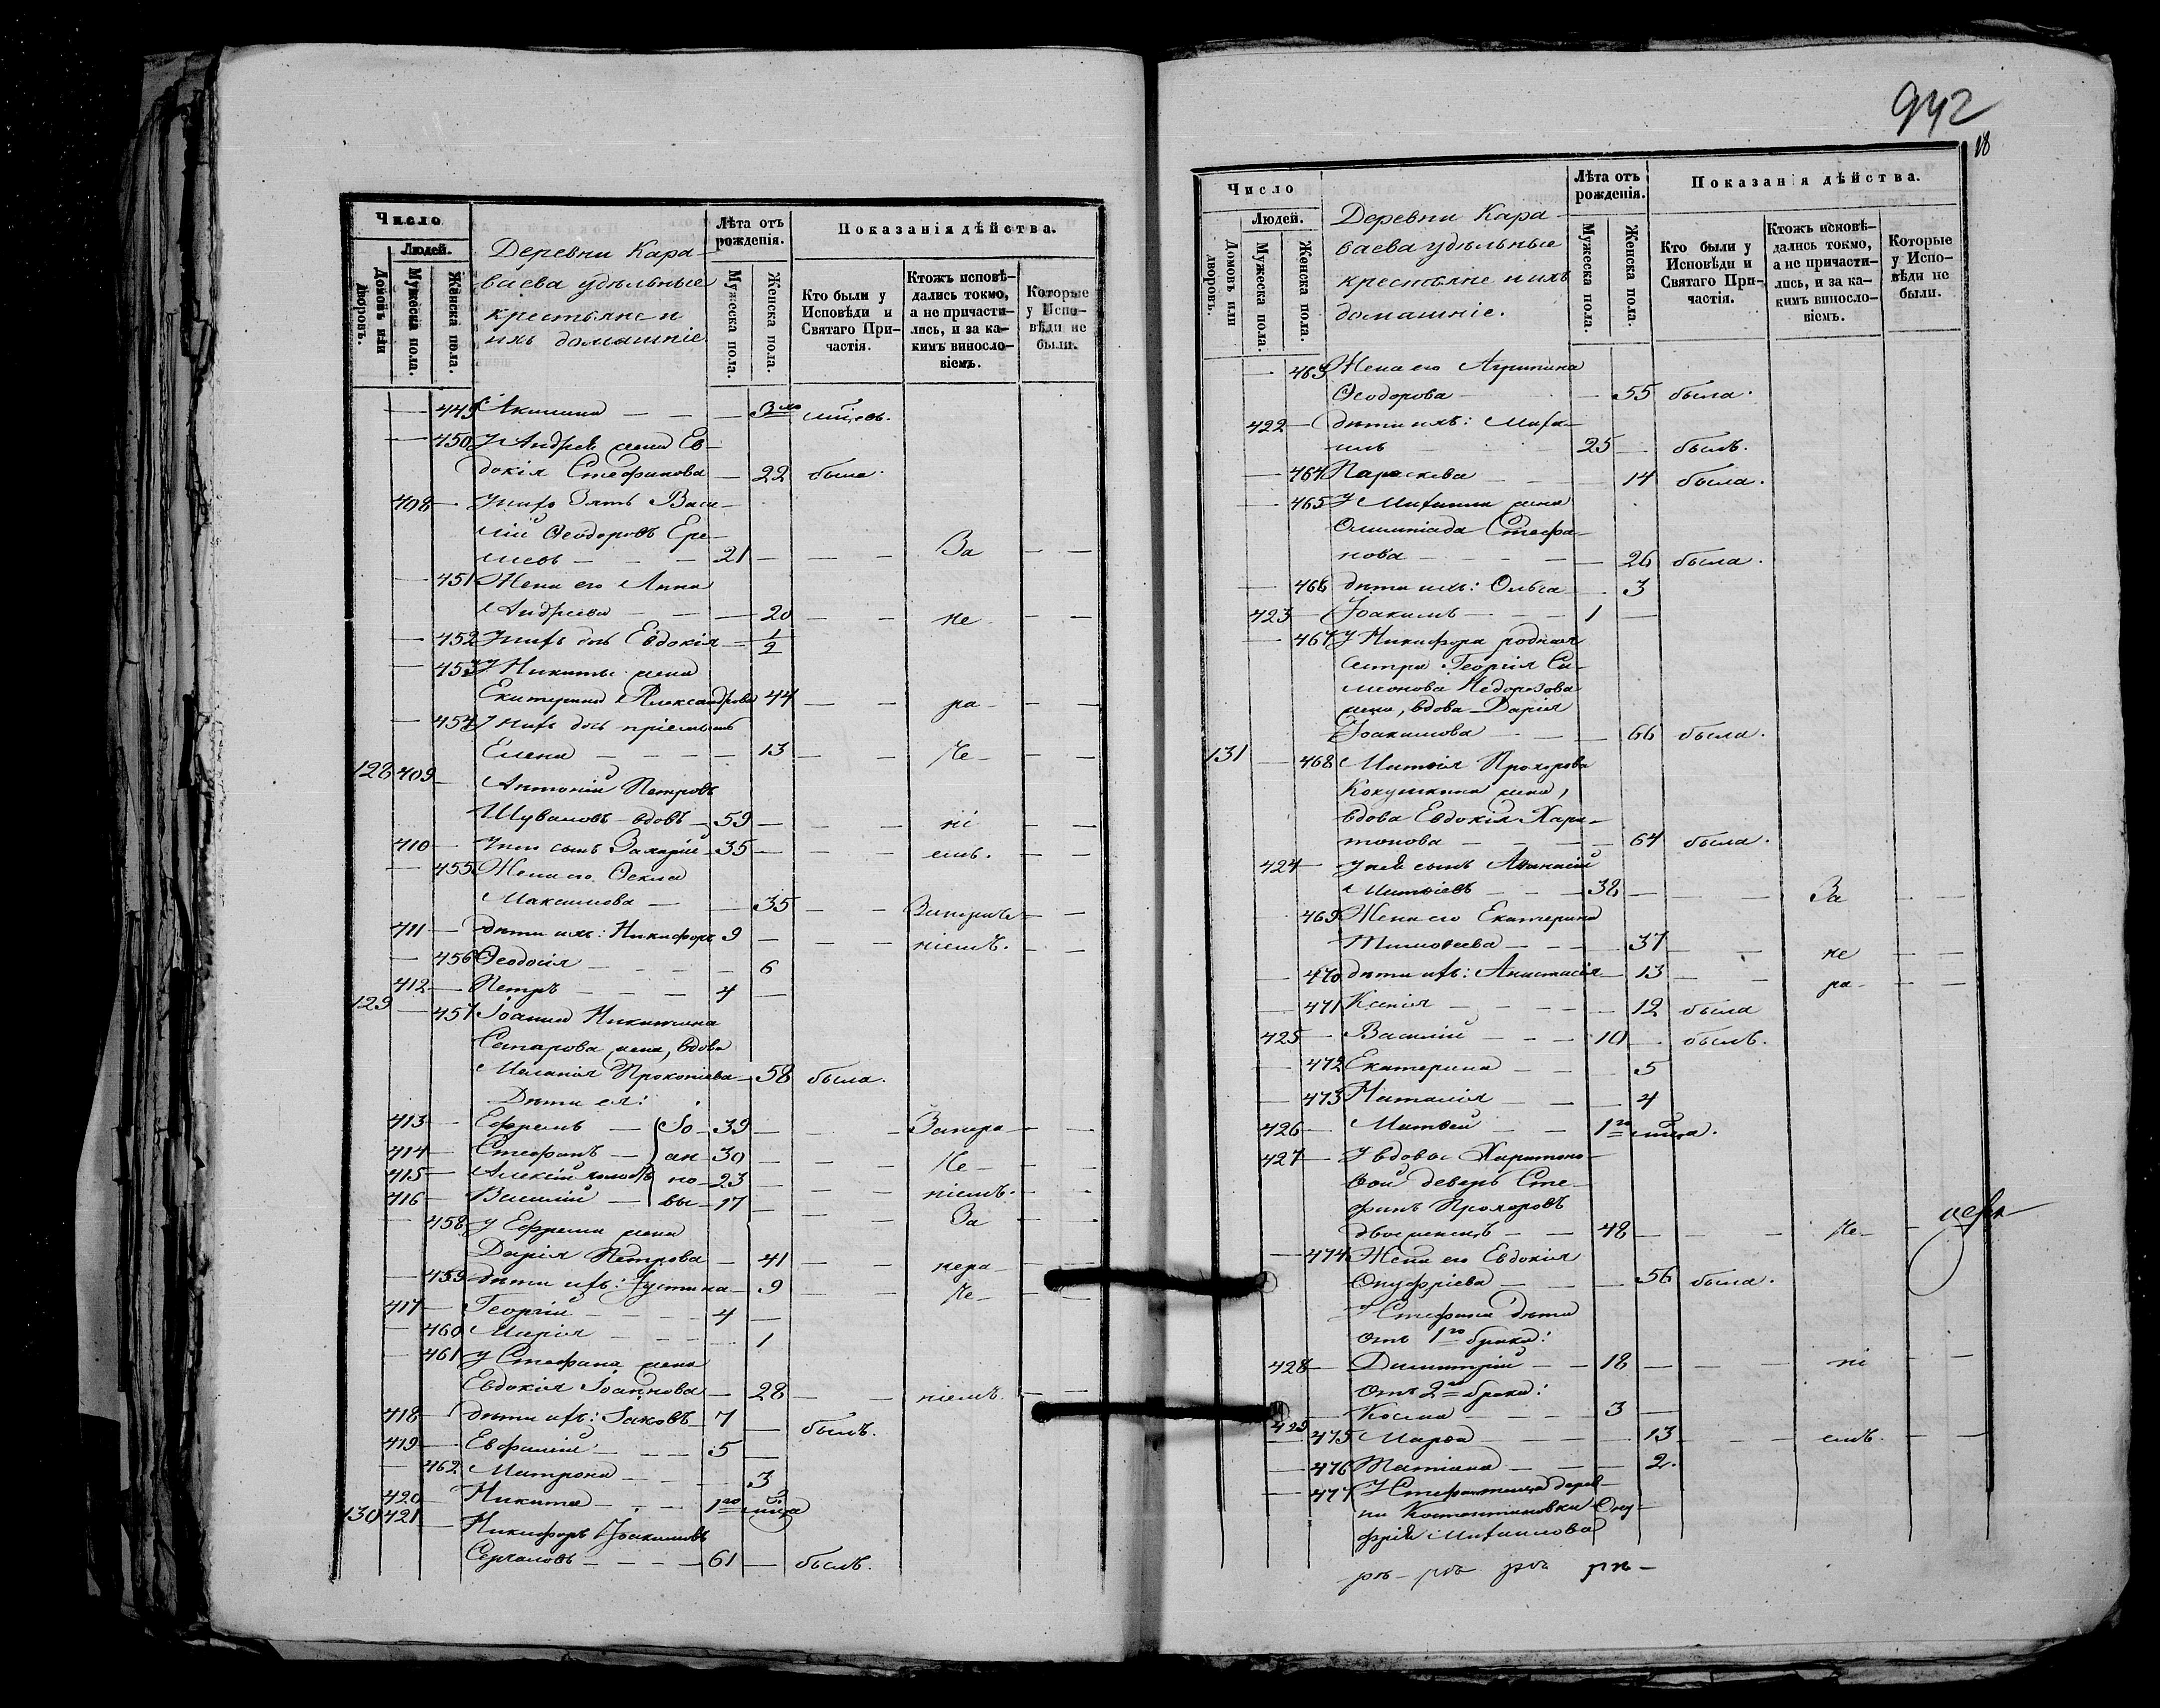 Число
Людей.
Домовъ или дворовъ.
Мужеска пола.
Женска пола.
Деревни Кара-
ваева удѣльные
крестьяне и
ихъ домашніе
Лѣта отъ рожденія.
Мужеска пола.
Женска пола.
Показанія дѣйства.
Кто были у Исповѣди и Святаго При-частія.
Ктожъ исповѣ-дались токмо, а не причасти-лись, и за ка-кимъ виносло-віемъ.
Которые у Испо-вѣди не были.
— 449 Акилина — — — 3 мѣсяцевъ.
— 450 У Андрея жена Ев-
докія Стефанова — 22 была.
408 — У нихъ зять Васи-
лій Ѳеодоровъ Ере-
меевъ — — — 21 — — — За — —
— 451 Жена его Анна
Андреева — — — 20 — — не — —
— 452 У нихъ дочь Евдокія — 1/2
— 453 У Никиты жена
Екатерина Александрова 44 — — ра- — —
— 454 У нихъ дочь пріемышъ
Елена — — — — 13 — — Че- — —
128 409 — Антоній Петровъ
Шуваловъ вдовъ — 59 — — — ні — —
410 — У него сынъ Захарій — 35 — — — емъ. — —
— 455 Жена его Ѳекла
Максимова — — 35 — — Занераче- — —
411 — дѣти ихъ: Никифоръ 9 — — — ніемъ. — —
— 456 Ѳеодосія — — — — 6
412 — Петръ — — — 4 —
129 — 457 Іоанна Никитина
Сапарова жена, вдова
Меланія Прокопіева — 58 была.
Дѣти ея:
413 — Ефремъ — Іо- 39 — — — Занера- — —
414 — Стефанъ — ан- 30 — — — Че- — —
415 — Алексій холостъ но- 23 — — — ніемъ. — —
416 — Василій — вы- 17 — — — За — —
— 458 у Ефрема жена
Дарія Петрова — 41 — — нера- —
— 459 дѣти ихъ: Іустина — 9 — — Че- — —
417 — Георгій — — — 4 —
— 460 Марія — — — — 1
— 461 у Стефана жена
Евдокія Іоаннова — 28 — — ніемъ. — —
418 — дѣти ихъ: Іаковъ — 7 — былъ.
419 — Евфимій — — — 5 —
— 462 Матрона — — — 3
420 — Никита — — — 1го мѣсяца
130 421 — Никифоръ Іоакимовъ
— — — — 61 — былъ.
942
18
Число
Людей.
Домовъ или дворовъ.
Мужеска пола.
Женска пола.
Деревни Кара-
ваева удѣльные
крестьяне и ихъ
домашніе.
Лѣта отъ рожденія.
Мужеска пола.
Женска пола.
Показанія дѣйства.
Кто были у Исповѣди и Святаго При-частія.
Ктожъ исповѣ-дались токмо, а не причасти-лись, и за ка-кимъ виносло-віемъ.
Которые у Испо-вѣди не были.
— 463 Жена его Агрипина
Ѳеодорова — — 55 была.
422 — дѣти ихъ: Миха-
илъ 25 — былъ.
— 464 Параскева — — — 14 была.
— 465 У Михаила жена
Олимпіада Стефа-
нова — — — — 26 была.
— 466 дѣти ихъ: Ольга — 3
423 — Іоакимъ — — 1 —
— 467 У Никифора родная
сестра: Георгія Си-
меонова Недорезова
жена, вдова Дарія
Іоакимова — — 66 была.
131 — 468 Матвія Прохорова
Кокушкина жена,
вдова Евдокія Хари-
тонова — — — — 64 была.
424 — у ней сынъ Аѳанасій
Матвіевъ — — — 38 — — — За — —
— 469 Жена его Екатерина
Тимоѳеева — — — 37 — — не — —
— 470 дѣти ихъ: Анастасія — 13 — — ра- — —
— 471 Ксенія — — — — 12 была
425 — Василій — — — 10 — былъ.
— 472 Екатерина — — — 5
— 473 Наталія — — — 4
426 — Матвей — — 1го мѣсяца.
427 — У вдовы Харитоно-
вой деверь Сте-
фанъ Прохоровъ
двоеженецъ — — 48 — — — Че- —
— 474 Жена его Евдокія
Онуфріева — — — 56 была.
У Стефана дѣти
отъ 1го брака:
428 — Димитрій — — 18 — — — ні — —
отъ 2го брака:
429 — Косма — — — 3 —
— 475 Марѳа — — — — 13 — — емъ. — —
— 476 Татіана — — — 2.
— 477 У Стефана теща дерев-
ни Константиновки Ону-
фрія Михаилова